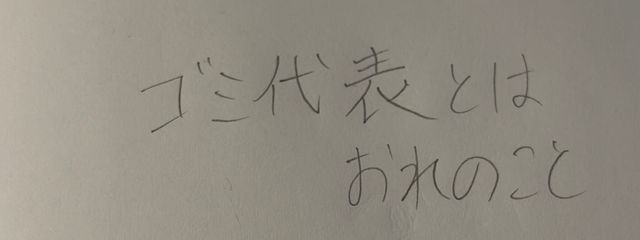 ゴミ代表とは
おれのこと